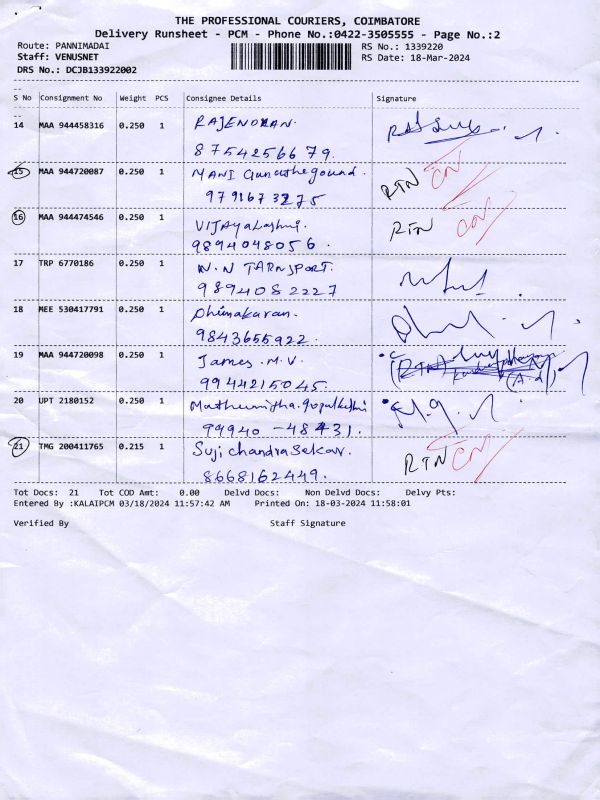 THE PROFESSIONAL COURIERS, COIMBATORE
Delivery Runsheet - PCM - Phone No.:0422-3505555 - Page No.:2
Route: PANNIMADAI
RS No.: 1339220
Staff: VENUSNET
RS Date: 18-Mar-2024
DRS No.: DCJB133922002
S No Consignment No Weight PCS Consignee Details Signature
14 MAA 944458316 0.250 1 RAJENDRAN.
8754256679.
15 MAA 944720087 0.250 1 MANI RTN CN
9791673275
16 MAA 944474546 0.250 1 VIJAYalashmi. RTN CN
9894048056.
17 TRP 6770186 0.250 1 N.N TARNSPORT.
9894082227
18 MEE 530417791 0.250 1 Dhinakaran.
9843655922.
19 MAA 944720098 0.250 1 James. M.V.
9944215045.
20 UPT 2180152 0.250 1
99940 -48431.
21 TMG 200411765 0.215 1 Suji chandra Sekar. RTN CN
8668162449.
Tot Docs: 21 Tot COD Amt: 0.00 Delvd Docs: Non Delvd Docs: Delvy Pts:
Entered By :KALAIPCM 03/18/2024 11:57:42 AM Printed On: 18-03-2024 11:58:01
Verified By Staff Signature